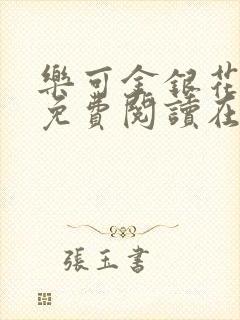 樂可金銀花
免費閱讀在
張玉書